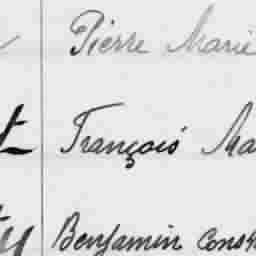 Pierre Marie
François Ma
Benjamin Const